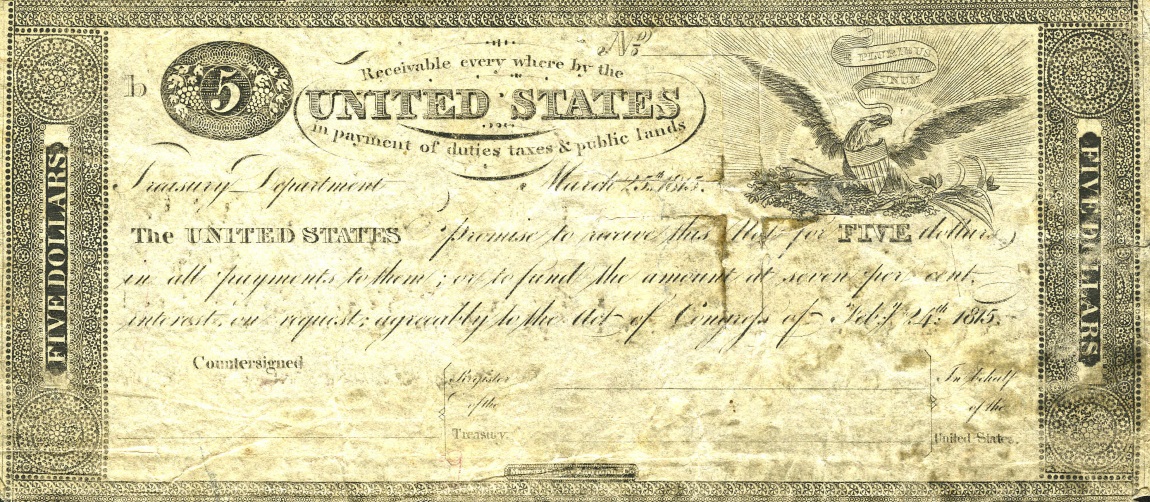 No
PLURIBUS
UNUM
b
5
Receivable every where by the
UNITED STATES
in payment of duties taxes & public lands
Treasury Department March 25th 1815.
The UNITED STATES promise to receive this Note for FIVE dollars
in all payments to them; or to fund the amount at seven per cent.
interest, on request; agreeably to the Act of Congress of Feby. 24th. 1815.
Countersigned
Register
of the
Treasury.
In behalf
of the
United States.
FIVE DOLLARS
FIVE DOLLARS